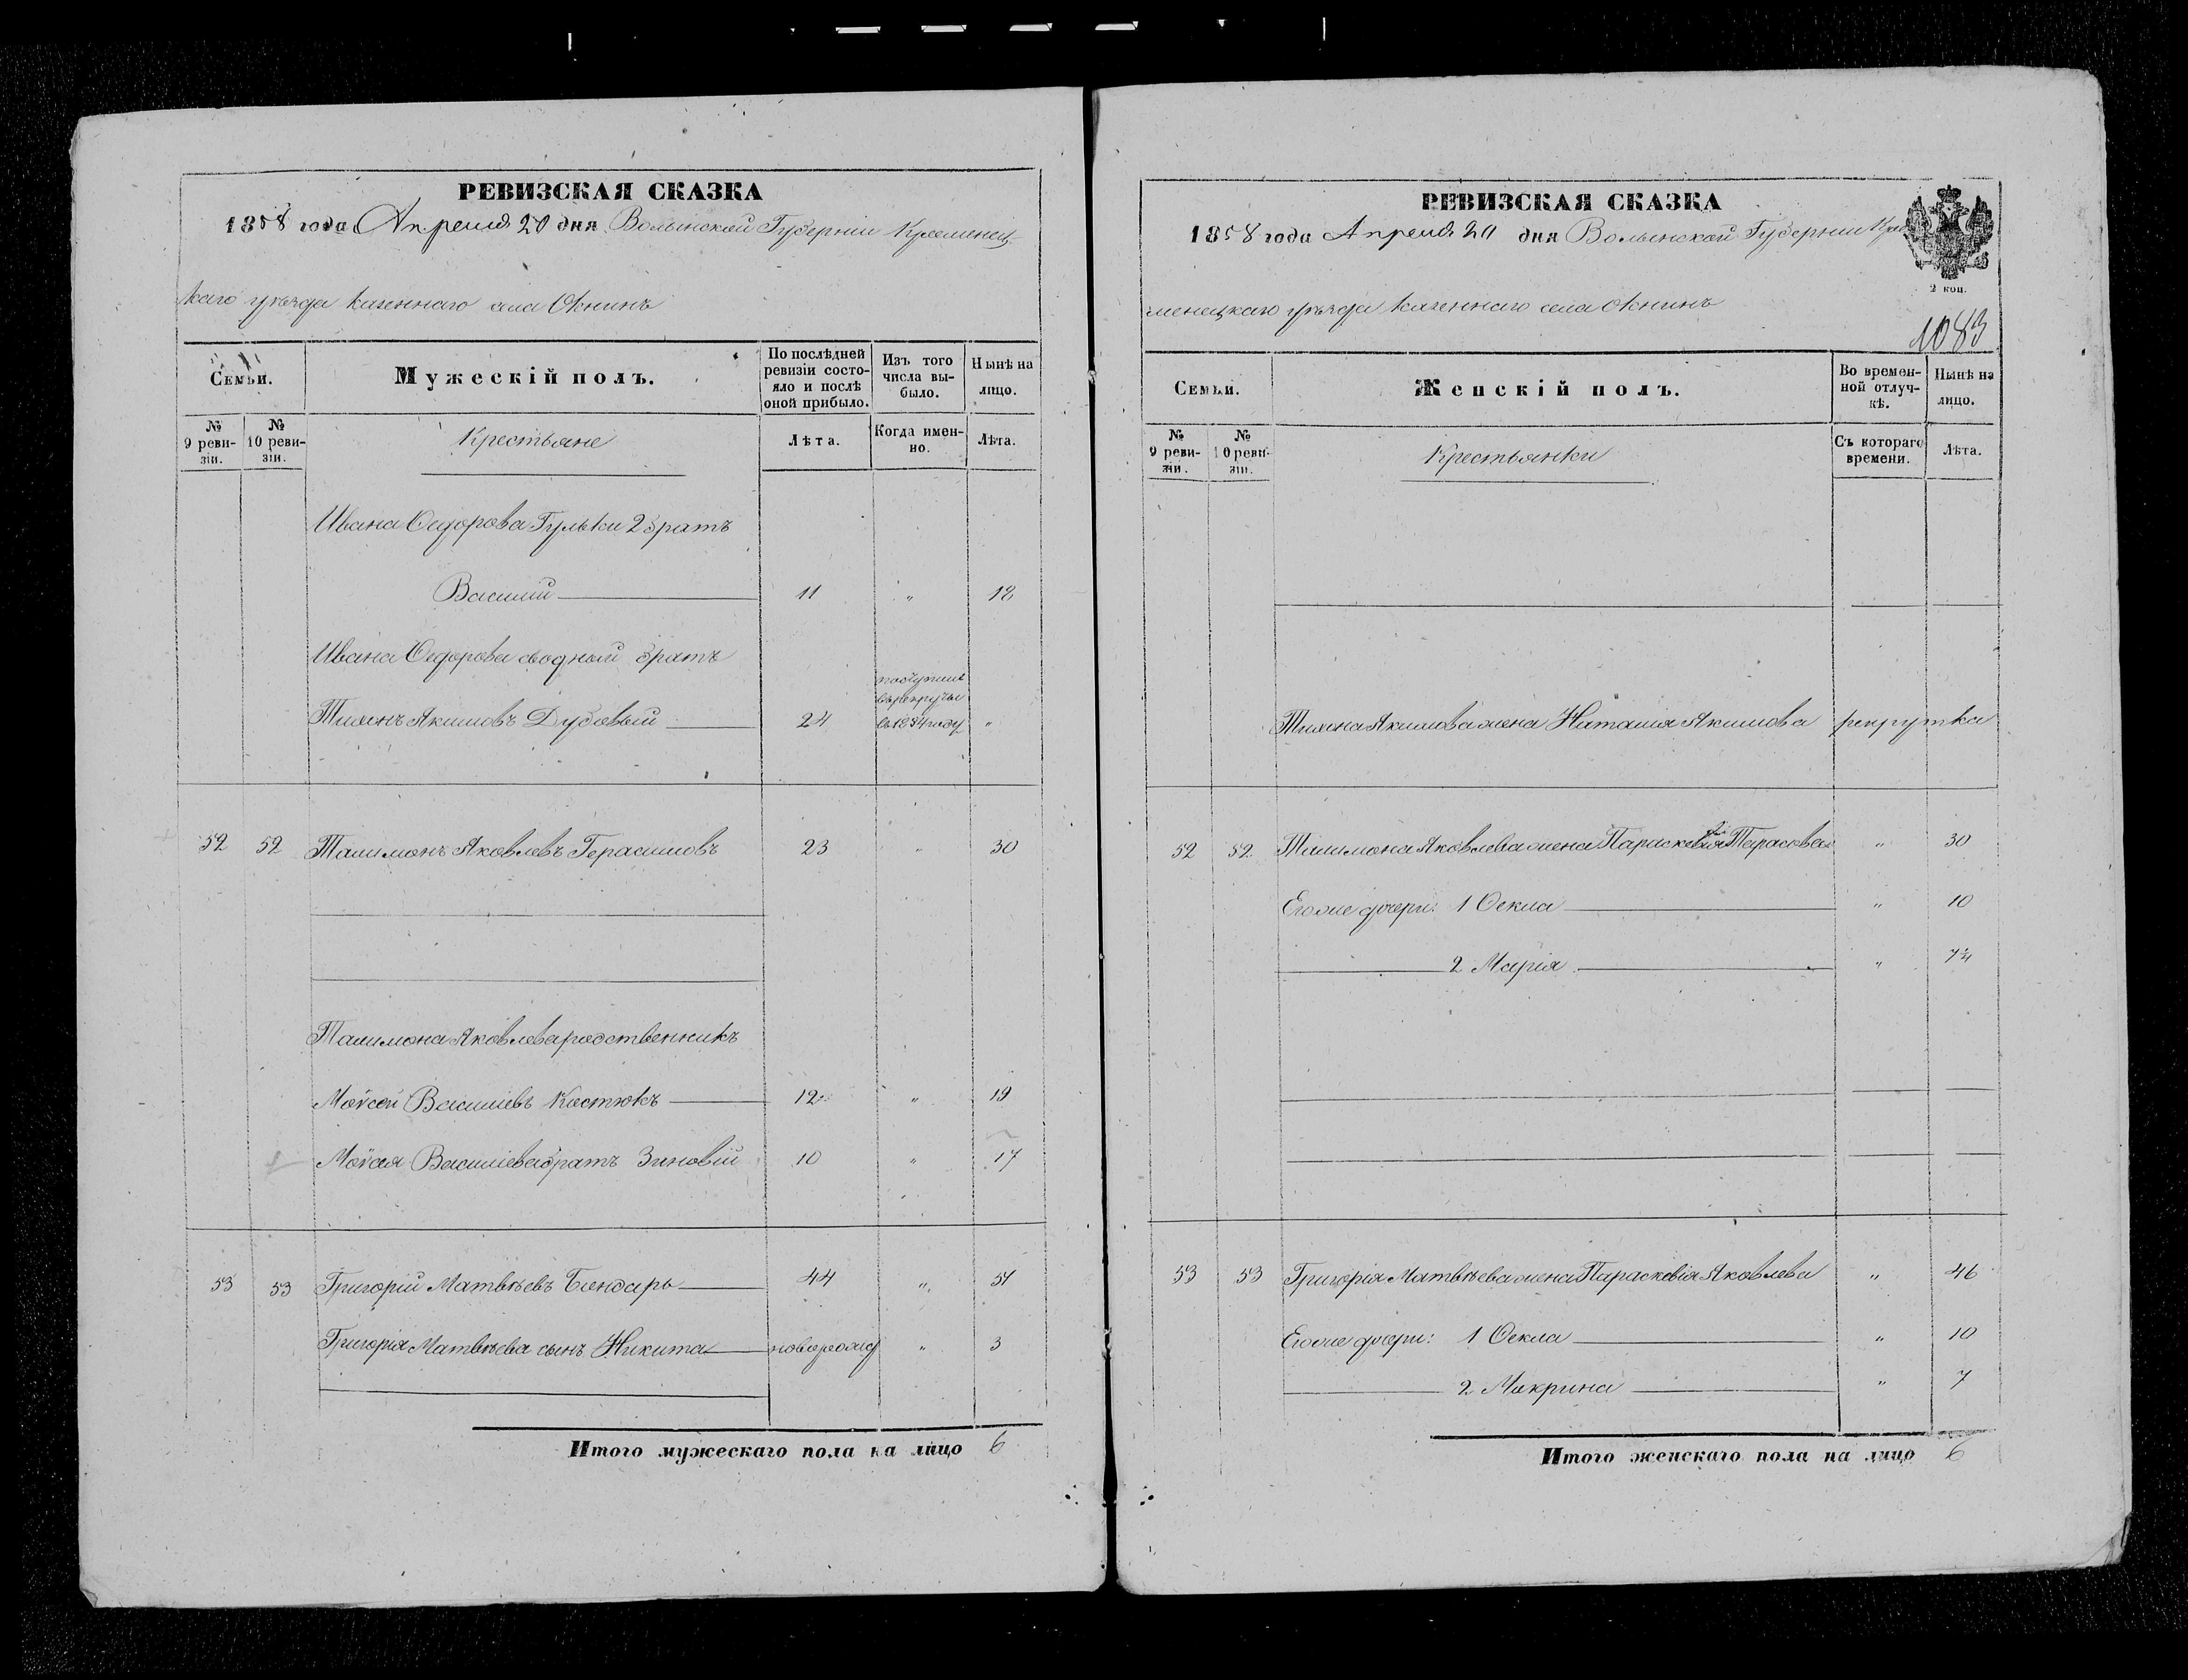 РЕВИЗСКАЯ СКАЗКА
1858 года Апреля 20 дня Волынской Губерніи Кременец-
каго уѣзда казеннаго села Окнинъ
Семьи.
Мужескій полъ.
По послѣдней ревизіи состо-яло и послѣ оной прибыло.
Изъ того числа вы-было.
Нынѣ на лицо.
№ 9 реви-зіи.
№ 10 реви-зіи.
Крестьяне
Лѣта.
Когда имен-но.
Лѣта.
Ивана Ѳедорова Гульки 2 братъ
Василій 11 „ 18
Ивана Ѳедорова сводный братъ
Тихонъ Акимовъ Дубовый 24 поступилъ въ рекруты в 1854 году „
52 52 Талимонъ Яковлевъ Герасимовъ 23 „ 30
Талимона Яковлева родственникъ
Мойсей Василіевъ Костюкъ 12 „ 19
Мойсея Василіева братъ Зиновій 10 „ 17
53 53 Григорій Матвѣевъ Бондарь 44 „ 51
Григорія Матвѣева сынъ Никита новорожд „ 3
Итого мужескаго пола на лицо 6
РЕВИЗСКАЯ СКАЗКА
1858 года Апреля 20 дня Волынской Губерніи Кре
менецкаго уѣзда казеннаго села Окнинъ
2 коп.
1083
Семьи.
Женскій полъ.
Во времен-ной отлуч-кѣ.
Нынѣ на лицо.
№ 9 реви-зіи.
№ 10 реви-зіи.
Крестьянки
Съ котораго времени.
Лѣта.
Тихона Акимова жена Наталія Акимова рекрутка
52 52 Талимона Яковлева жена Параскевія Тарасова „ 30
Его же дочери: 1 Ѳекла „ 10
2 Марія „
53 53 Григорія Матвѣева жена Параскевія Яковлева „ 46
Его же дочери: 1 Ѳекла „ 10
2 Макрина „ 7
Итого женскаго пола на лицо 6